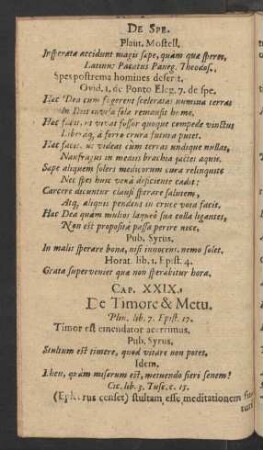 DE SPE.
Plaut. Mostell.
Insperata accidunt magis sæpe, quàm quæ speres.
Latinus Pacatus Paneg. Theodos.,
Spes postrema homines deserit.
Ovid. l. de Ponto Eleg. 7. de spe.
Hæc Dea cum fugerent sceleratas numina terras
In Diis invisa sola remansit humo.
Hæc facit, ut vivat fossor quoque compede vinctus
Liberáq; à ferro crura futura putet.
Hæc facit, ut videat cùm terras undique nullas,
Naufragus in mediis brachia jactet aquis.
Sæpe aliquem solers medicorum cura relinquit
Nec spes huic venâ deficiente cadit:
Carcere dicuntur clausi sperare salutem,
Atq; aliquis pendens in cruce vota facit.
Hæc Dea quàm multos laqueô sua colla ligantes,
Non est propositâ passa perire nece.
Pub. Syrus,
In malis sperare bona, nisi innocens, nemo solet.
Horat. lib. 1. Epist. 4.
Grata superveniet quæ non sperabitur hora.
CAP. XXIX.
De Timore & Metu.
Plin. lib. 7. Epist. 17.
Timor est emendator acerrimus.
Pub. Syrus,
Stultum est timere, quod vitare non potes.
Idem,
Eheu, quàm miserum est, metuendo fieri senem!
Cic. lib. 3. Tusc. c. 15.
(Epicurus censet) stultam esse meditationem